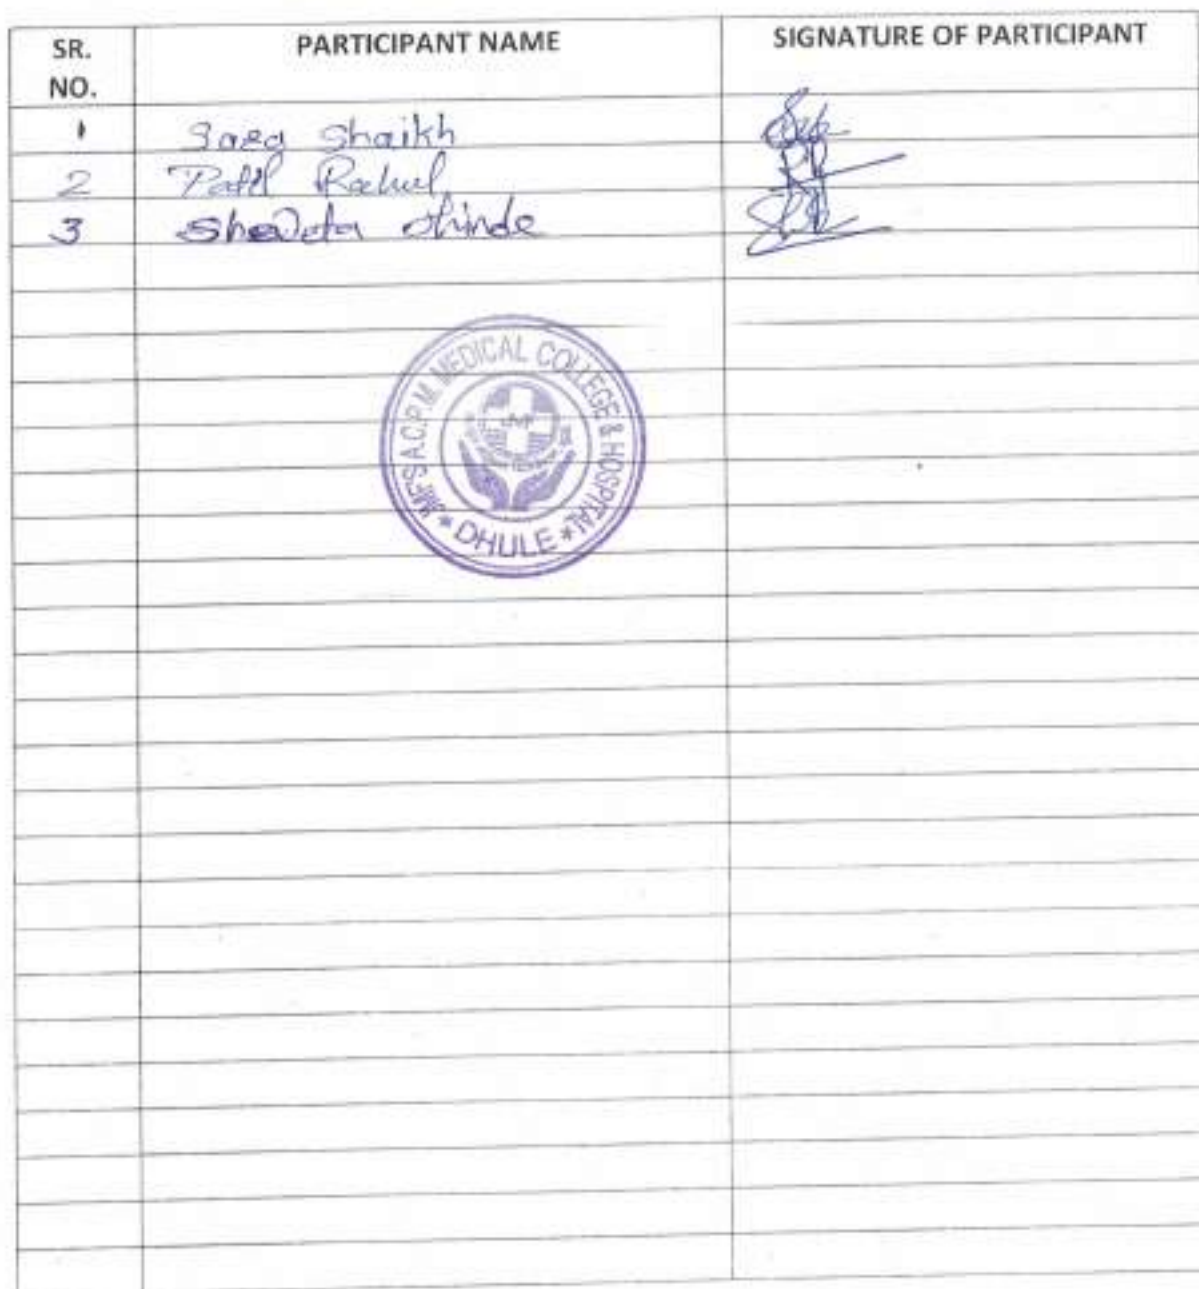 SR. NO. PARTICIPANT NAME SIGNATURE OF PARTICIPANT
1 Sara Shaikh
2 Patil Rahul
3 Shinde
JMF'S A.C.P.M. MEDICAL COLLEGE & HOSPITAL
* DHULE *